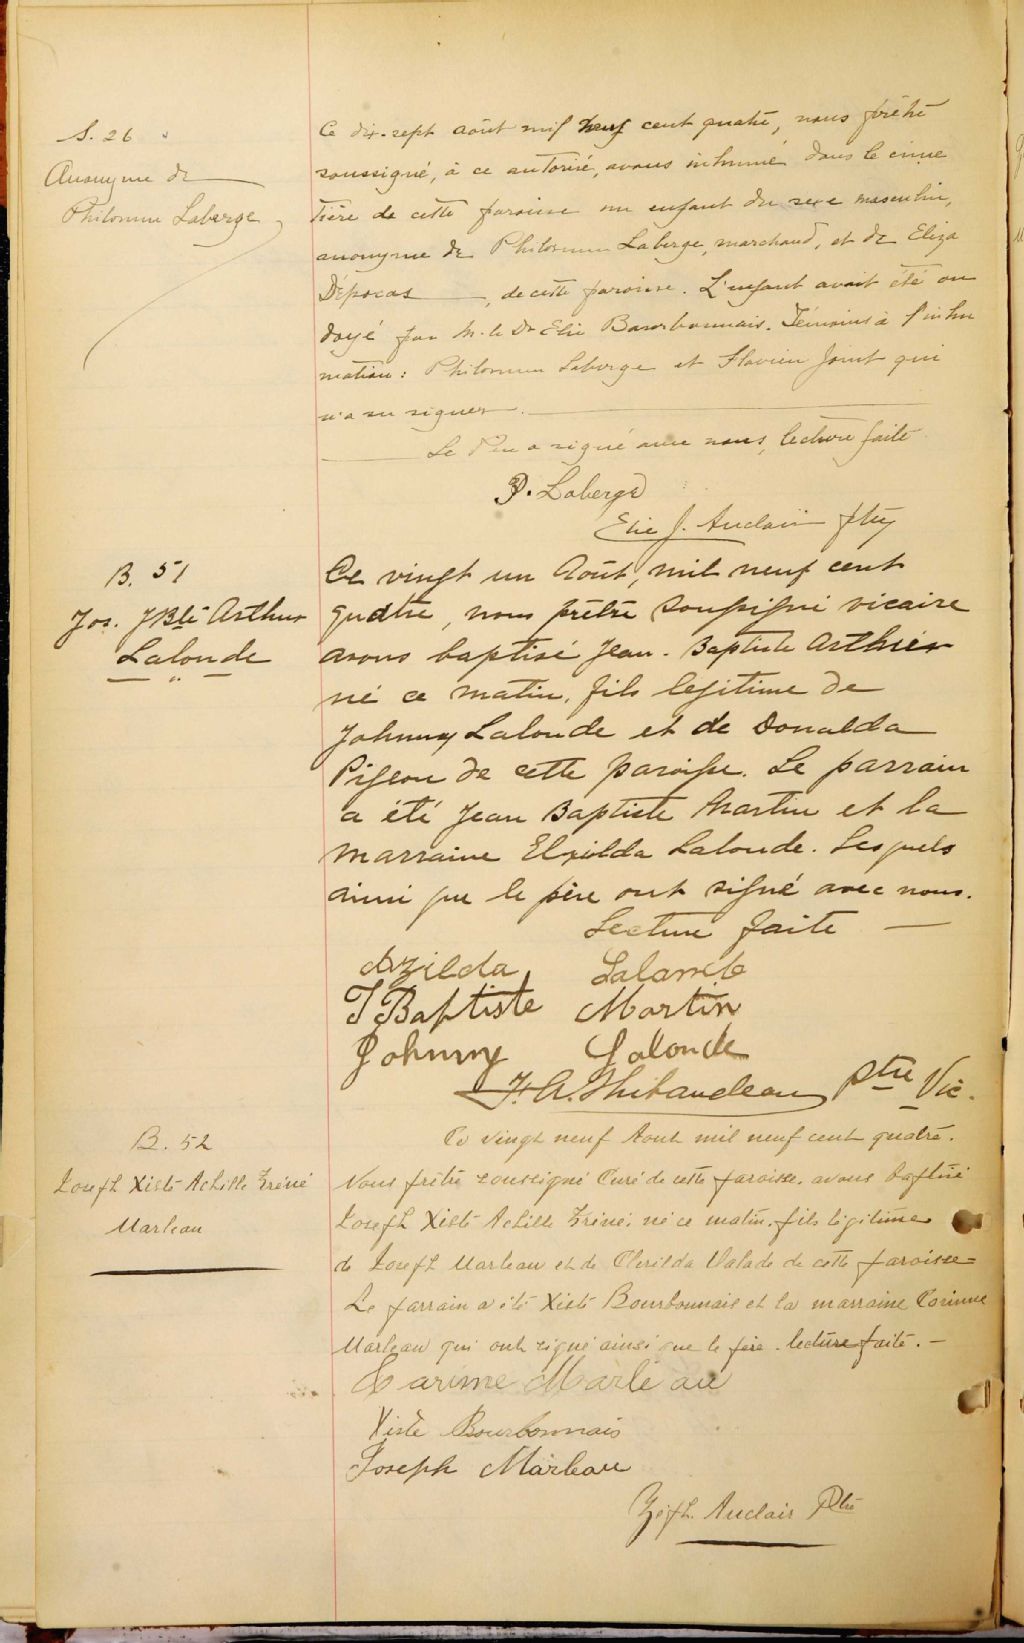 S. 26
Anonyme de
Philorum Laberge
Ce dix-sept août mil neuf cent quatre, nous prêtre
soussigné, à ce autorisé, avons inhumé dans le cime
tière de cette paroisse un enfant du sexe masculin,
anonyme de Philorum Laberge, marchand, et de Eliza
Dépocas, de cette paroisse. L'enfant avait été on
doyé par M. le Dr Elie Bourbonnais. Témoins à l'inhu
mation: Philorum Laberge et Flavien Joint qui
n'a su signer.
Le Père a signé avec nous, lecture faite
P. Laberge
Elie J. Auclair ptre
B. 51
Jos. J Bte Arthur
Lalonde
Ce vingt un Août, mil neuf cent
quatre, nous prêtre soussigné vicaire
avons baptisé Jean-Baptiste Arthur
né ce matin, fils legitime de
Johnny Lalonde et de Donalda
Pigeon de cette paroisse. Le parrain
a été Jean Baptiste Martin et la
marraine Elzilda Lalonde. Lesquels
ainsi que le père ont signé avec nous.
Lecture faite —
Lalonde
J Baptiste Martin
Johnny Lalonde
F. A. Thibaudeau Ptre Vic.
B. 52
Joseph Xiste Achille Iréné
Marleau
Ce vingt neuf Aout mil neuf cent quatre.
Nous prêtre soussigné Curé de cette paroisse. avons baptisé
Joseph Xiste Achille Iréné, né ce matin. fils légitime
de Joseph Marleau et de Clerilda Valade de cette paroisse=
Le parrain a été Xiste Bourbonnais et la marraine Corinne
Marleau qui ont signé ainsi que le père. lecture faite. —
Carinne Marleau
Xiste Bourbonnais
Joseph Marleau
Zéph. Auclair Ptre